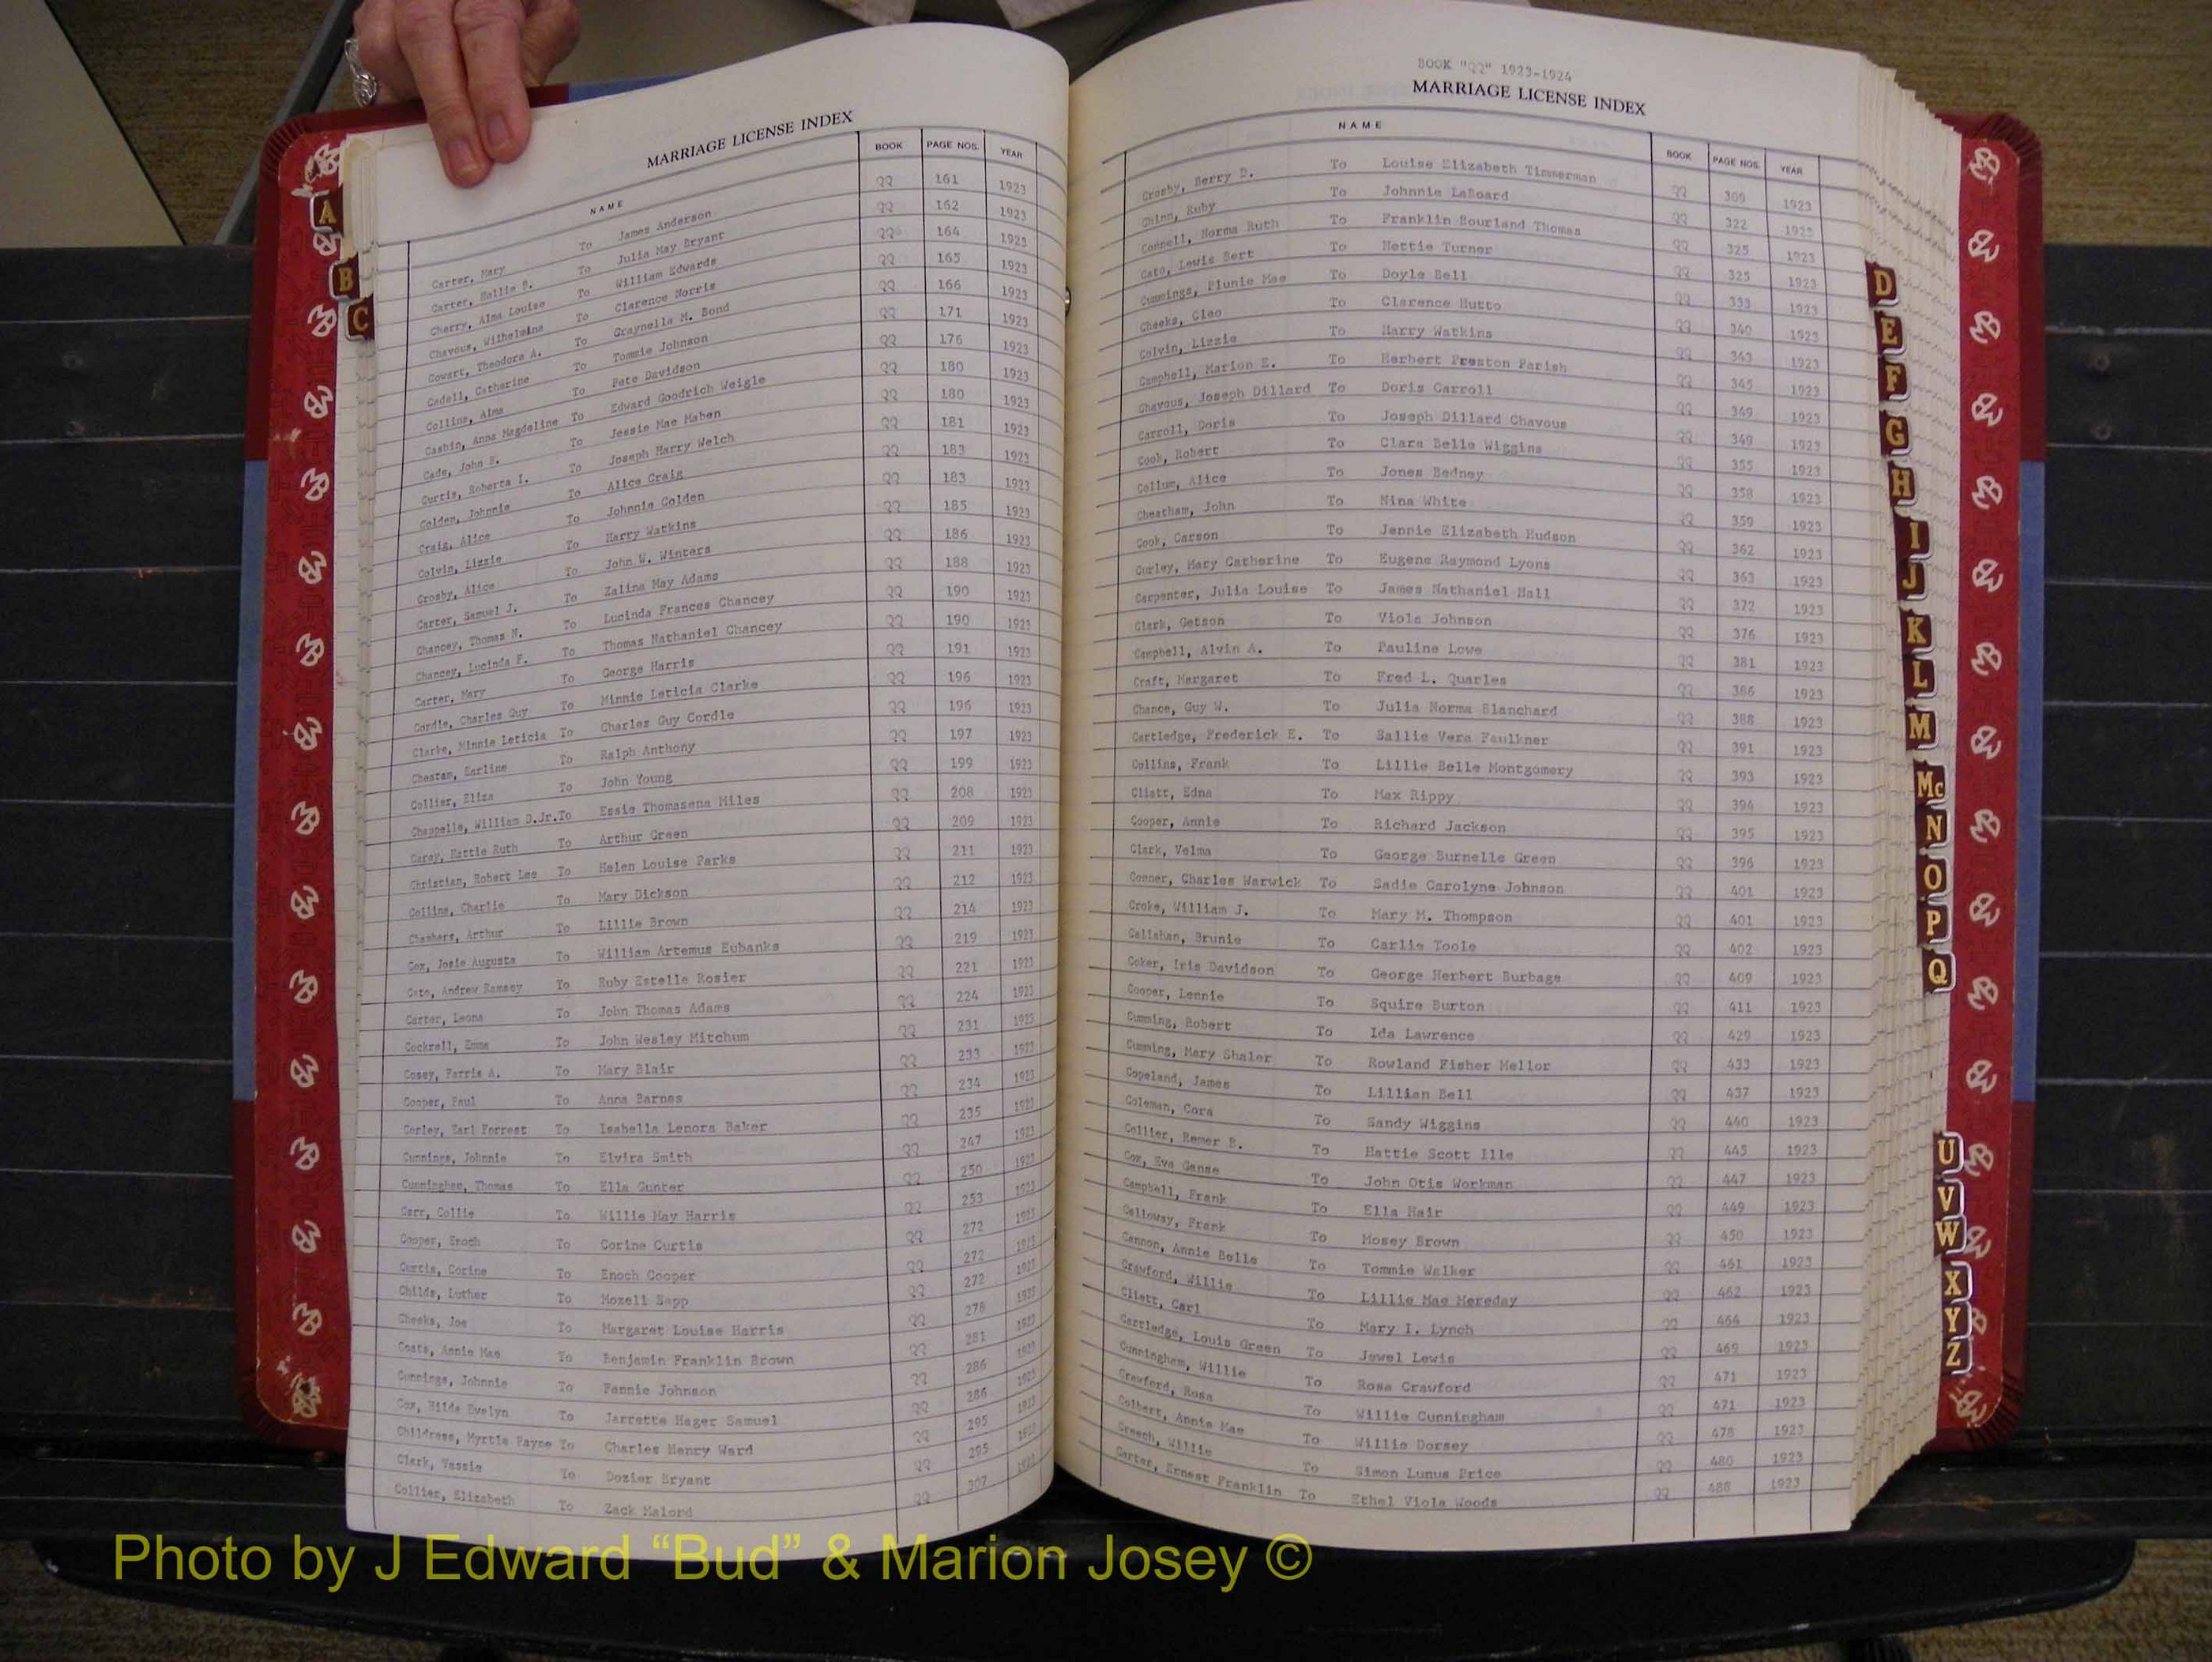 MARRIAGE LICENSE INDEX
NAME BOOK PAGE NOS. YEAR
Carter, Mary To James Anderson QQ 161 1923
Carter, Hallie B. To Julia May Bryant QQ 162 1923
Cherry, Alma Louise To William Edwards QQ 164 1923
Chavous, Wilhelmina To Clarence Norris QQ 165 1923
Cowart, Theodore A. To Graynella M. Bond QQ 166 1923
Cadell, Catherine To Tommie Johnson QQ 171 1923
Collins, Alma To Pete Davidson QQ 176 1923
Casbin, Anna Magdeline To Edward Goodrich Weigle QQ 180 1923
Cade, John B. To Jessie Mae Maben QQ 180 1923
Curtis, Roberta I. To Joseph Harry Welch QQ 181 1923
Golden, Johnnie To Alice Craig QQ 183 1923
Craig, Alice To Johnnie Golden QQ 183 1923
Colvin, Lizzie To Harry Watkins QQ 185 1923
Crosby, Alice To John W. Winters QQ 186 1923
Carter, Samuel J. To Zalina May Adams QQ 188 1923
Chancey, Thomas N. To Lucinda Frances Chancey QQ 190 1923
Chancey, Lucinda F. To Thomas Nathaniel Chancey QQ 190 1923
Carter, Mary To George Harris QQ 191 1923
Cordle, Charles Guy To Minnie Leticia Clarke QQ 196 1923
Clarke, Minnie Leticia To Charles Guy Cordle QQ 196 1923
Cheatam, Earline To Ralph Anthony QQ 197 1923
Collier, Eliza To John Young QQ 199 1923
Chappelle, William D.Jr.To Essie Thomasena Miles QQ 208 1923
Carey, Hattie Ruth To Arthur Green QQ 209 1923
Christian, Robert Lee To Helen Louise Parks QQ 211 1923
Collins, Charlie To Mary Dickson QQ 212 1923
Chambers, Arthur To Lillie Brown QQ 214 1923
Cox, Josie Augusta To William Artemus Eubanks QQ 219 1923
Cato, Andrew Ramsey To Ruby Estelle Rosier QQ 221 1923
Carter, Leona To John Thomas Adams QQ 224 1923
Cockrell, Emma To John Wesley Mitchum QQ 231 1923
Cosey, Farris A. To Mary Blair QQ 233 1923
Cooper, Paul To Anna Barnes QQ 234 1923
Corley, Earl Forrest To Isabella Lenora Baker QQ 235 1923
Cummings, Johnnie To Elvira Smith QQ 247 1923
Cunningham, Thomas To Ella Gunter QQ 250 1923
Carr, Collie To Willie May Harris QQ 253 1923
Cooper, Enoch To Corine Curtis QQ 272 1923
Curtis, Corine To Enoch Cooper QQ 272 1923
Childs, Luther To Mozell Sapp QQ 272 1923
Cheeks, Joe To Margaret Louise Harris QQ 278 1923
Coats, Annie Mae To Benjamin Franklin Brown QQ 281 1923
Cummings, Johnnie To Fannie Johnson QQ 286 1923
Cox, Hilda Evelyn To Jarrette Hager Samuel QQ 286 1923
Childress, Myrtle Payne To Charles Henry Ward QQ 295 1923
Clark, Vassie To Dozier Bryant QQ 295 1923
Collier, Elizabeth To Zack Malord QQ 307 1923
BOOK "QQ" 1923-1924
MARRIAGE LICENSE INDEX
NAME BOOK PAGE NOS. YEAR
Crosby, Berry D. To Louise Elizabeth Timmerman QQ 1923
Chinn, Ruby To Johnnie LaBoard QQ 322 1923
Connell, Norma Ruth To Franklin Bourland Thomas QQ 325 1923
Cato, Lewis Bert To Nettie Turner QQ 325 1923
Cummings, Plunie Mae To Doyle Bell QQ 333 1923
Cheeks, Cleo To Clarence Hutto QQ 340 1923
Colvin, Lizzie To Harry Watkins QQ 343 1923
Campbell, Marion E. To Herbert Preston Parish QQ 345 1923
Chavous, Joseph Dillard To Doris Carroll QQ 349 1923
Carroll, Doris To Joseph Dillard Chavous QQ 349 1923
Cook, Robert To Clara Belle Wiggins QQ 355 1923
Collum, Alice To Jones Bedney QQ 358 1923
Cheatham, John To Nina White QQ 359 1923
Cook, Carson To Jennie Elizabeth Hudson QQ 362 1923
Curley, Mary Catherine To Eugene Raymond Lyons QQ 363 1923
Carpenter, Julia Louise To James Nathaniel Hall QQ 372 1923
Clark, Getson To Viola Johnson QQ 376 1923
Campbell, Alvin A. To Pauline Lowe QQ 381 1923
Craft, Margaret To Fred L. Quarles QQ 386 1923
Chance, Guy W. To Julia Norma Blanchard QQ 388 1923
Cartledge, Frederick E. To Sallie Vera Faulkner QQ 391 1923
Collins, Frank To Lillie Belle Montgomery QQ 393 1923
Cliatt, Edna To Max Rippy QQ 394 1923
Cooper, Annie To Richard Jackson QQ 395 1923
Clark, Velma To George Burnelle Green QQ 396 1923
Conner, Charles Warwick To Sadie Carolyne Johnson QQ 401 1923
Croke, William J. To Mary M. Thompson QQ 401 1923
Callahan, Brunie To Carlie Toole QQ 402 1923
Coker, Iris Davidson To George Herbert Burbage QQ 409 1923
Cooper, Lennie To Squire Burton QQ 411 1923
Cumming, Robert To Ida Lawrence QQ 429 1923
Cumming, Mary Shaler To Rowland Fisher Mellor QQ 433 1923
Copeland, James To Lillian Bell QQ 437 1923
Coleman, Cora To Sandy Wiggins QQ 440 1923
Collier, Remer B. To Hattie Scott Ille QQ 445 1923
Cox, Eva Ganse To John Otis Workman QQ 447 1923
Campbell, Frank To Ella Hair QQ 449 1923
Calloway, Frank To Mosey Brown QQ 450 1923
Cannon, Annie Belle To Tommie Walker QQ 461 1923
Crawford, Willie To Lillie Mae Mereday QQ 462 1923
Cliett, Carl To Mary I. Lynch QQ 464 1923
Cartledge, Louis Green To Jewel Lewis QQ 469 1923
Cunningham, Willie To Rosa Crawford QQ 471 1923
Crawford, Rosa To Willie Cunningham QQ 471 1923
Colbert, Annie Mae To Willie Dorsey QQ 478 1923
Creech, Willie To Simon Lunus Price QQ 480 1923
Carter, Ernest Franklin To Ethel Viola Woods QQ 488 1923
A
B
C
D
E
F
G
H
I
J
K
L
M
Mc
N
O
P
Q
U
V
W
X
Y
Z
Photo by J Edward “Bud” & Marion Josey ©